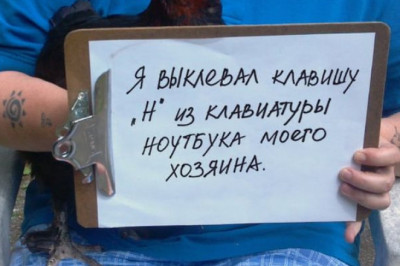 Я ВЫКЛЕВАЛ КЛАВИШУ
„Н" ИЗ КЛАВИАТУРЫ
НОУТБУКА МОЕГО
ХОЗЯИНА.